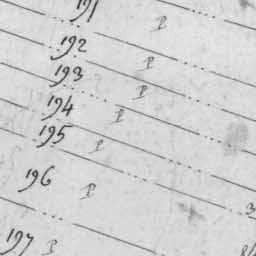 191 P
192 P
193 P
194 P
195 P
196 P
197 P
3